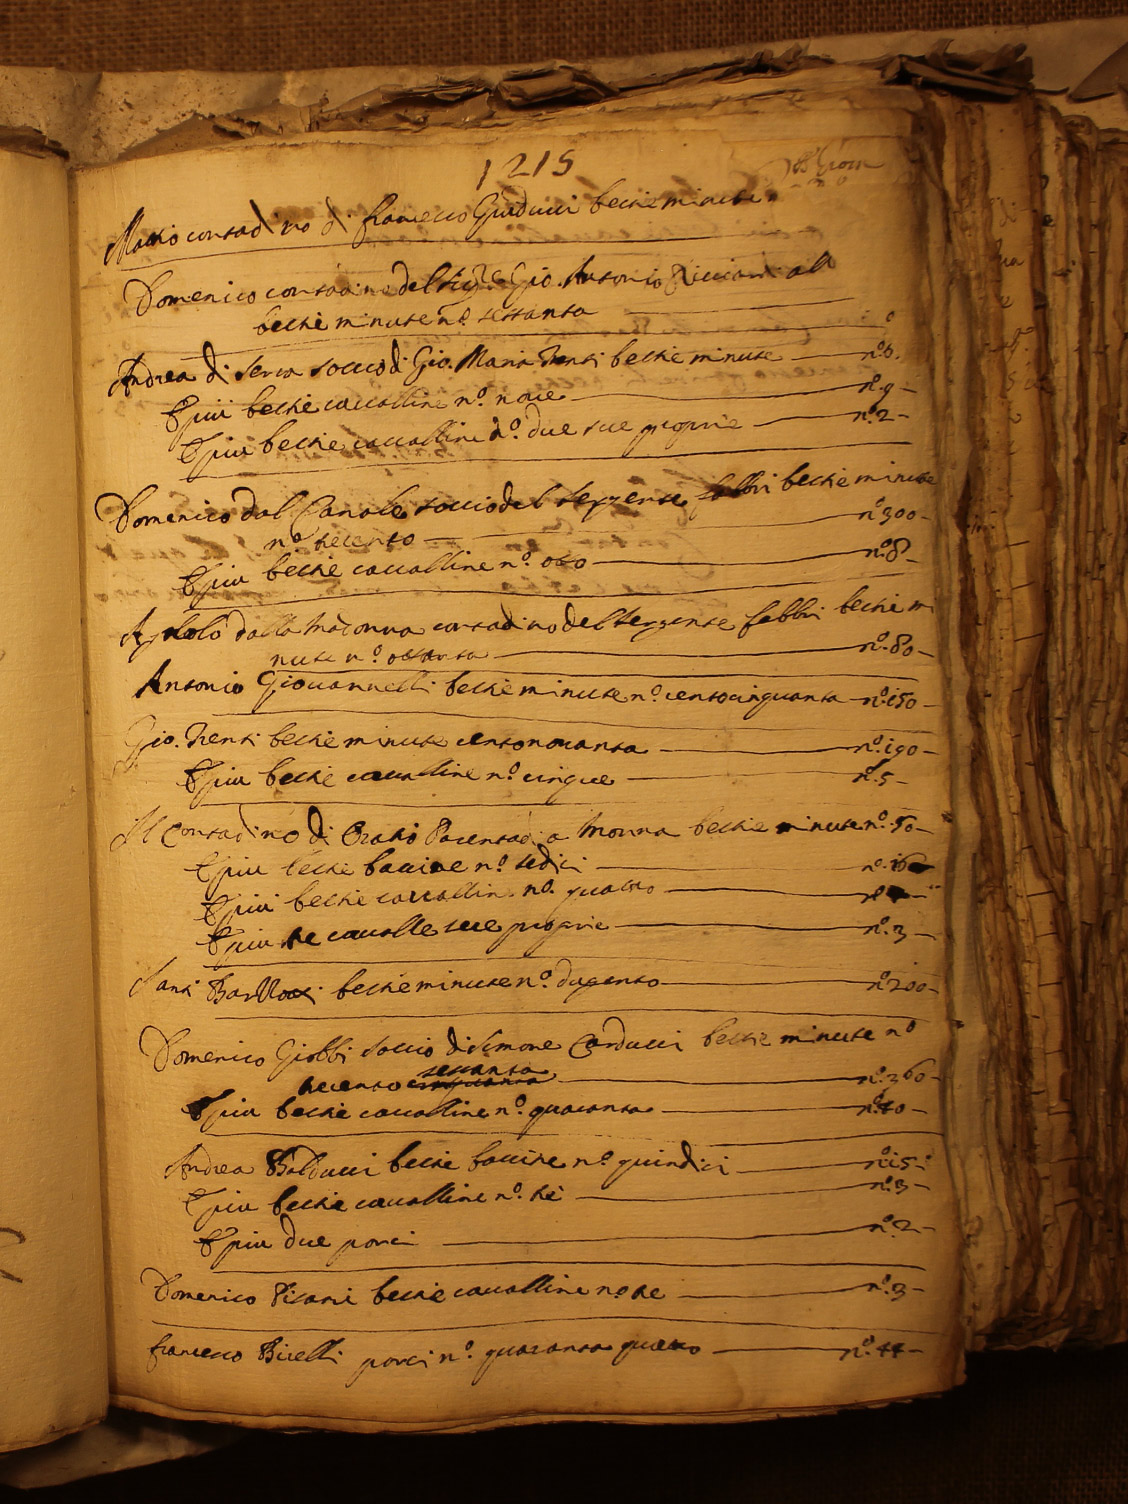 1215
contadino di Francesco Guiducci bestie minute
Domenico contadino del Gio. Antonio Ricciardi
bestie minute n.o sessanta
Andrea di Serra soccio di Gio. Maria Trenti bestie minute n.o
E piu bestie cavalline n.o nove n.o 9
E piu bestie cavalline n.o due sue proprie n.o 2
Domenico dal Canale soccio del sergente fabbri bestie minute
n.o trecento n.o 300
E piu bestie cavalline n.o otto n.o 8
dalla Madonna contadino del sergente fabbri bestie mi
nute n.o ottanta n.o 80
Antonio Giovannelli bestie minute n.o centocinquanta n.o 150
Gio. Trenti bestie minute centonovanta n.o 190
E piu bestie cavalline n.o cinque n.o 5
Il Contadino di Monna bestie minute n.o 50
E piu bestie baccine n.o sedici n.o 16
E piu bestie cavalline n.o quattro n.o
E piu tre cavalle sue proprie n.o 3
Santi bestie minute n.o dugento n.o 200
Domenico Giobbi soccio di Simone Carducci bestie minute n.o
trecento sessanta n.o 360
E piu bestie cavalline n.o quaranta n.o 40
Andrea Balducci bestie baccine n.o quindici n.o 15
E piu bestie cavalline n.o tre n.o 3
E piu due porci n.o 2
Domenico Pisani bestie cavalline no tre n.o 3
francesco Birelli porci n.o quaranta quatro n.o 44